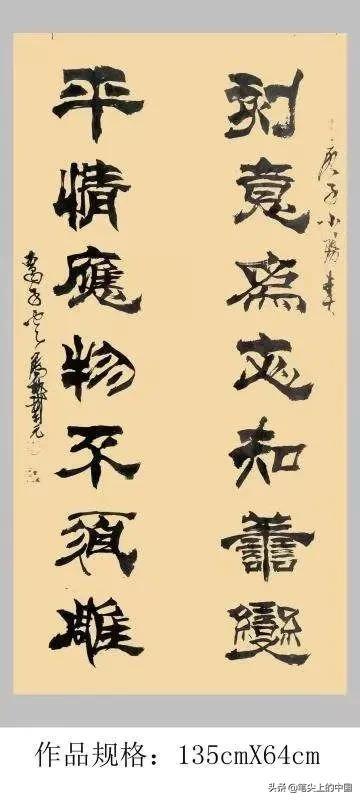 庚子小陽春
刻意為文知善變
平情應物不須雕
作品规格：135cmX64cm
头条 @笔头上的中国